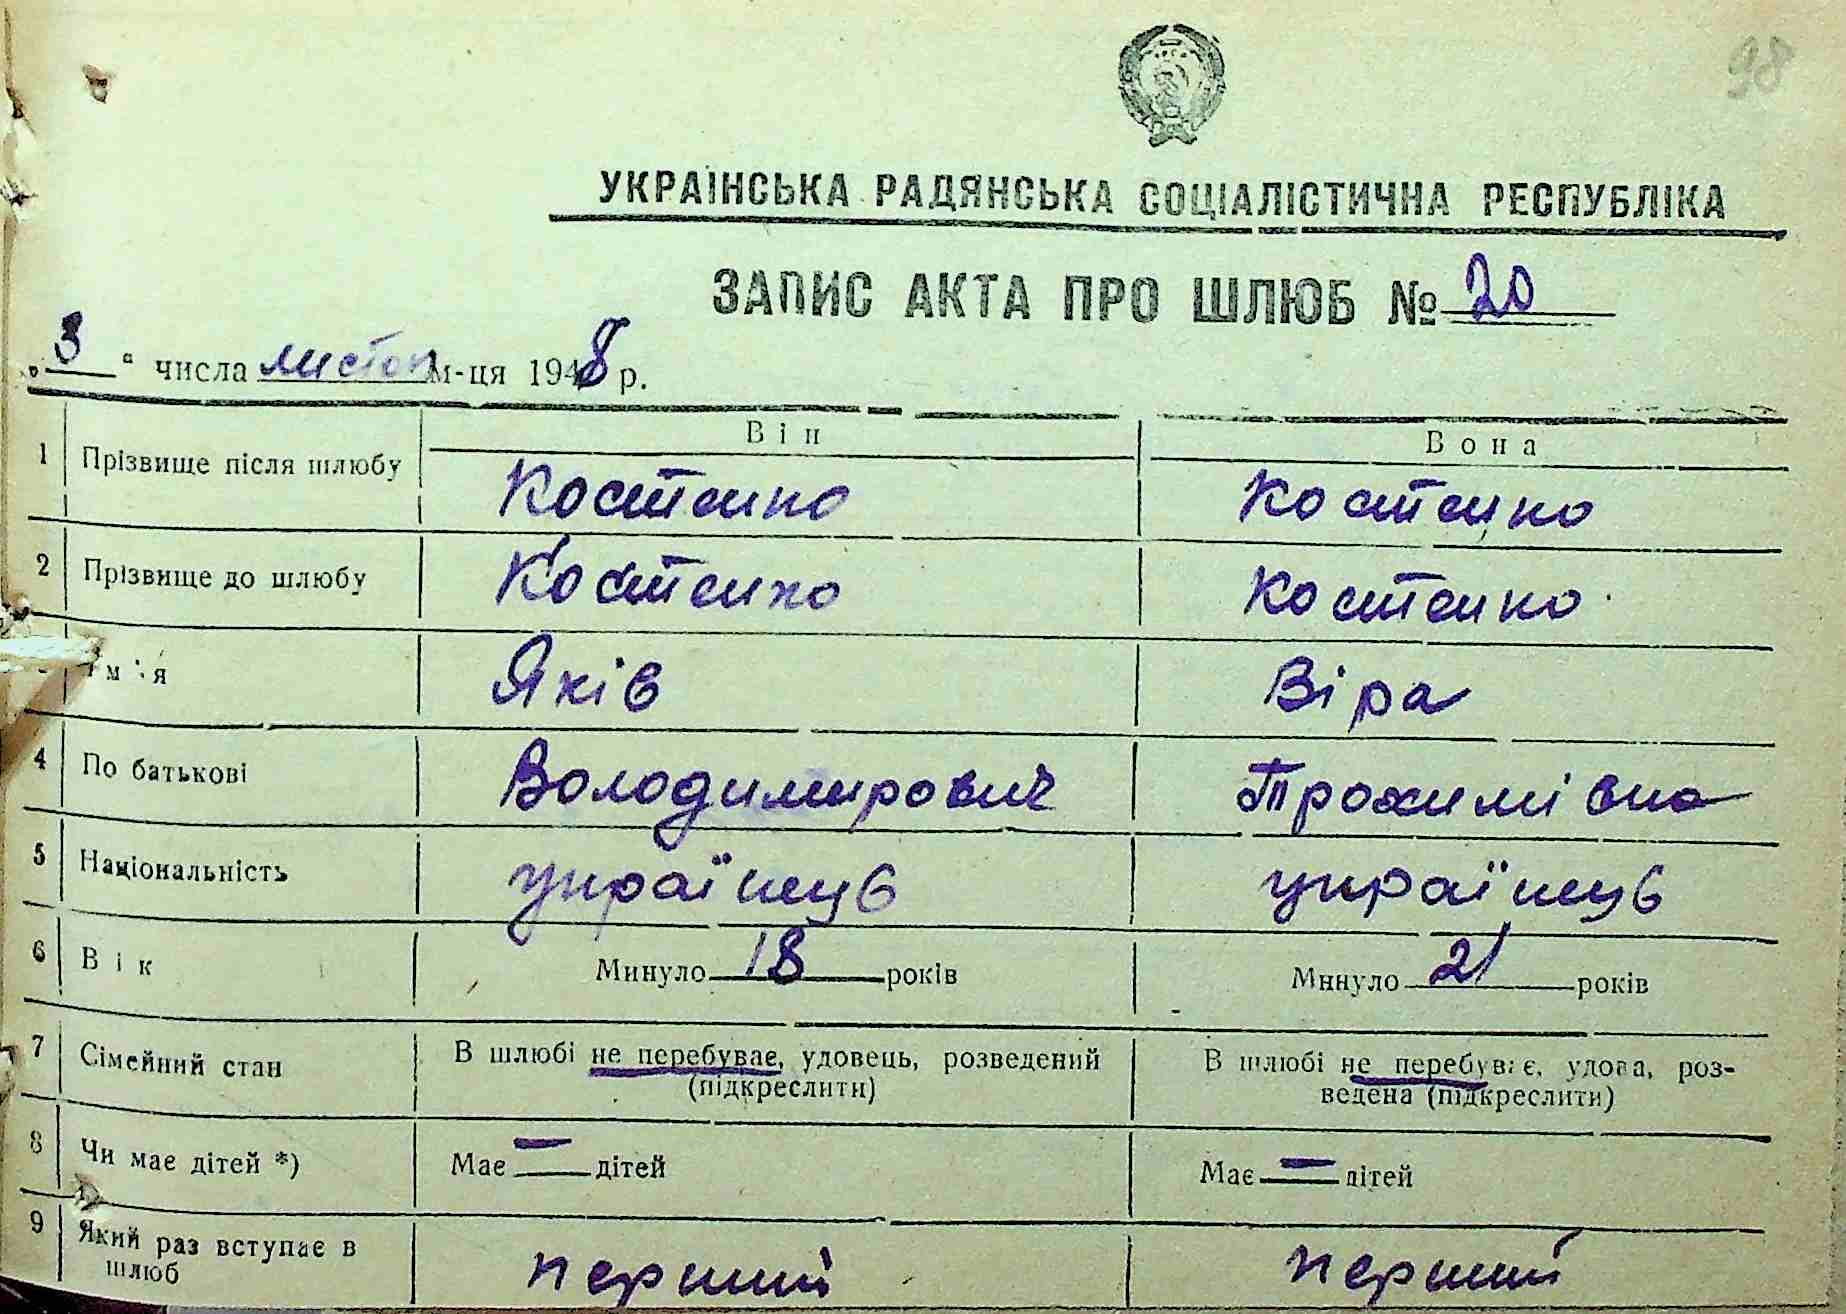 98
УКРАЇНСЬКА РАДЯНСЬКА СОЦІАЛІСТИЧНА РЕСПУБЛІКА
ЗАПИС АКТА ПРО ШЛЮБ № 20
„ 3 “ числа листоп м-ця 1948 р.
Він Вона
1 Прізвище після шлюбу Костенко Костенко
2 Прізвище до шлюбу Костенко Костенко
Ім'я Яків Віра
4 По батькові Володимирович Трохимівна
5 Національність українець українець
6 Вік Минуло 18 років Минуло 21 років
7 Сімейний стан В шлюбі не перебуває, удовець, розведений (підкреслити) В шлюбі не перебуває, удова, роз-
ведена (підкреслити)
8 Чи має дітей *) Має — дітей Має — дітей
9 Який раз вступає в
шлюб перший перший